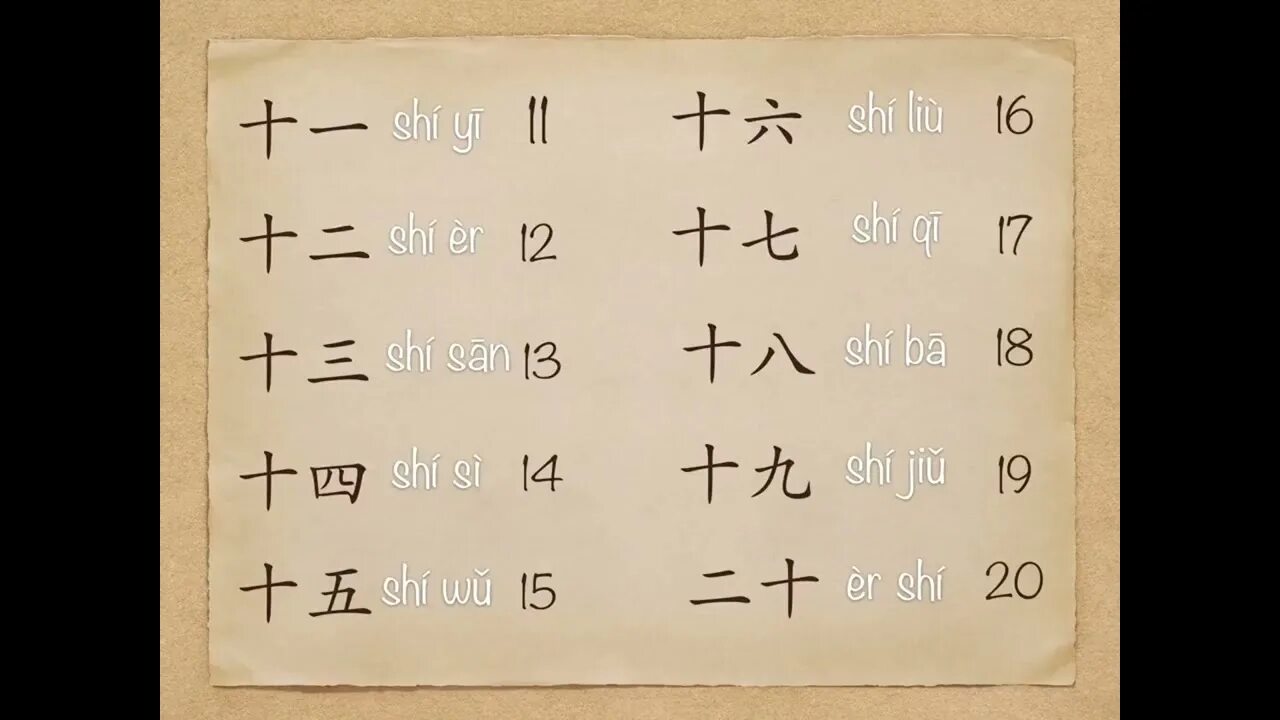 十一 shí yī 11
十二 shí èr 12
十三 shí sān 13
十四 shí sì 14
十五 shí wǔ 15
十六 shí liù 16
十七 shí qī 17
十八 shí bā 18
十九 shí jiǔ 19
二十 èr shí 20